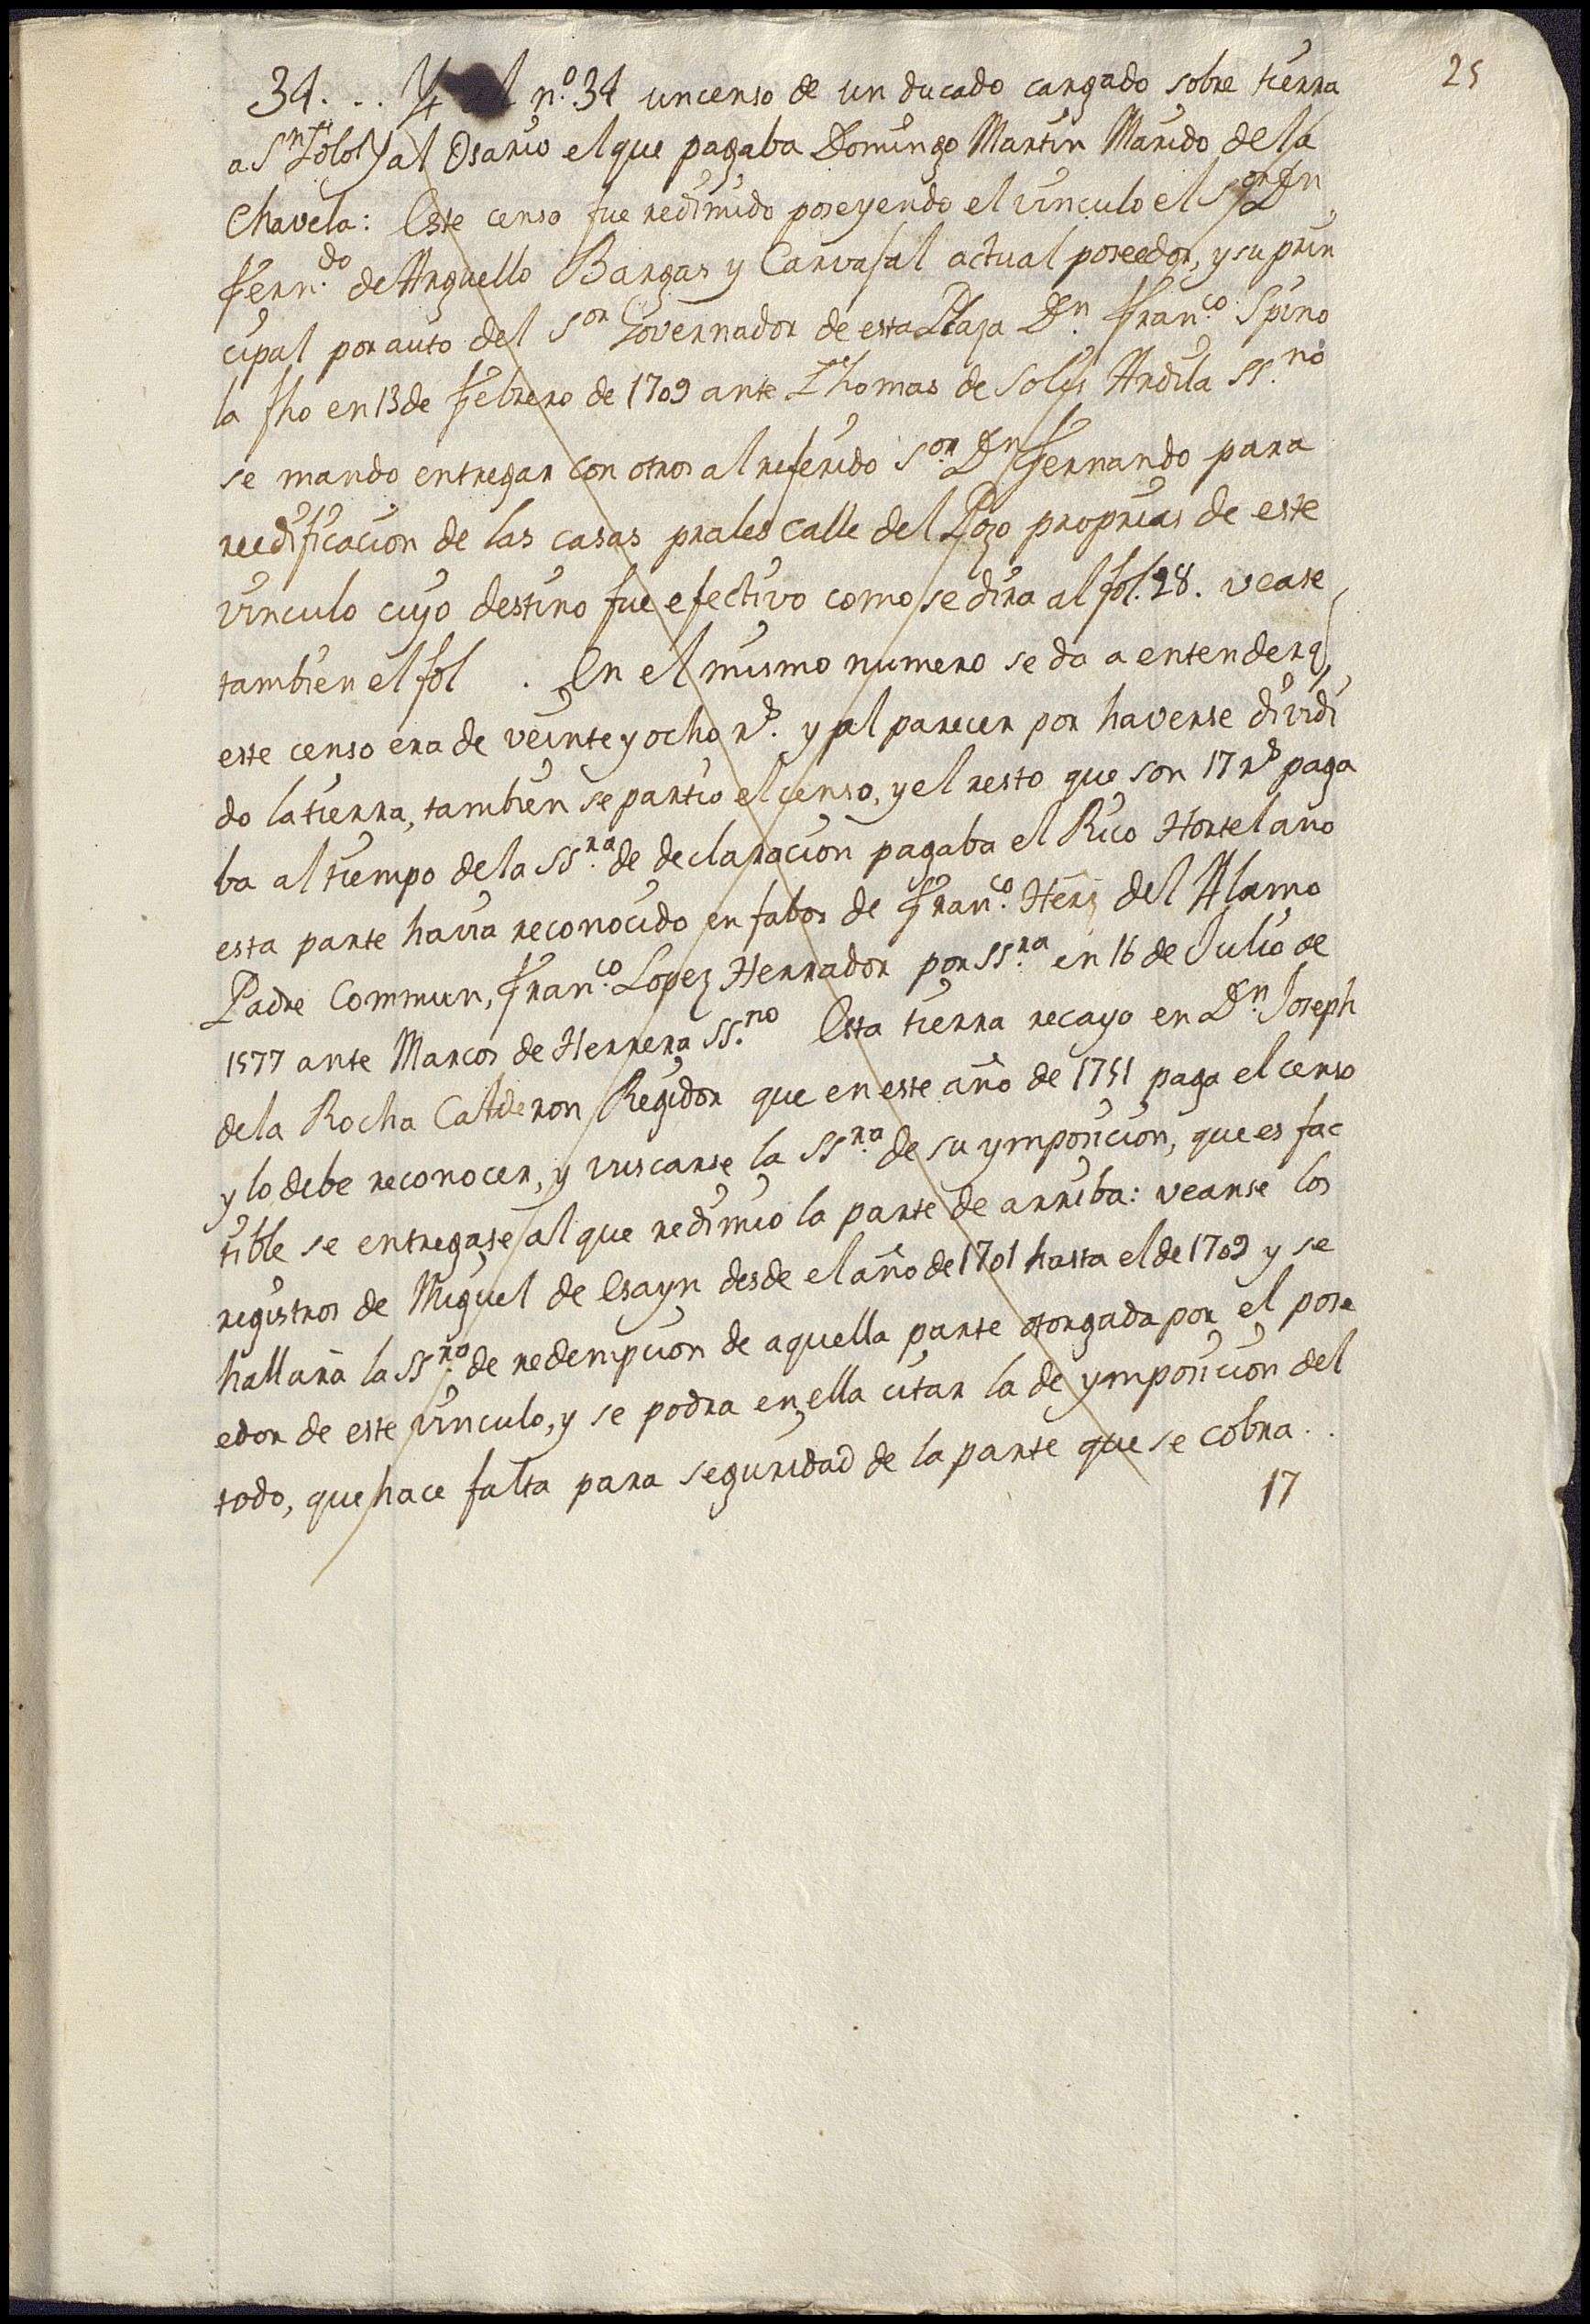 25
34. . . Y al n.º 34 un censo de un ducado cargado sobre tierra
a S.n Tolol y al Osario el que pagaba Domingo Martin Marido de la
Chavela: Este censo fue redimido poseyendo el vinculo el S.or D.n
Fern.do de Arguello Bargas y Carvajal actual poseedor, y su prin
cipal por auto del S.or Governador de esta Plaza D.n Fran.co Spino
la fho en 13 de Febrero de 1709 ante Thomas de Solis Ardila SS.no
se mando entregar con otros al referido S.or D.n Fernando para
reedificacion de las casas prales calle del Pozo proprias de este
vinculo cuyo destino fue efectivo como se dira al fol. 28. vease
tambien el fol . En el mismo numero se da a entender q
este censo era de veinte y ocho r.s y al parecer por haverse dividi
do la tierra, tambien se partio el censo, y el resto que son 17 r.s paga
ba al tiempo de la SS.ra de declaracion pagaba el Rico Hortelano
esta parte havia reconocido en fabor de Fran.co Herz del Alamo
Padre Commun, Fran.co Lopez Herrador por SS.ra en 16 de Julio de
1577 ante Marcos de Herrera SS.no Esta tierra recayo en D.n Joseph
de la Rocha Calderon Regidor que en este año de 1751 paga el censo
y lo debe reconocer, y vuscarse la SS.ra de su ymposicion, que es fac
tible se entregase al que redimio la parte de arriba: veanse los
registros de Miguel de Esayn desde el año de 1701 hasta el de 1709 y se
hallara la SS.ra de redempcion de aquella parte otorgada por el pose
edor de este vinculo, y se podra en ella citar la de ymposicion del
todo, que hace falta para seguridad de la parte que se cobra . .
17